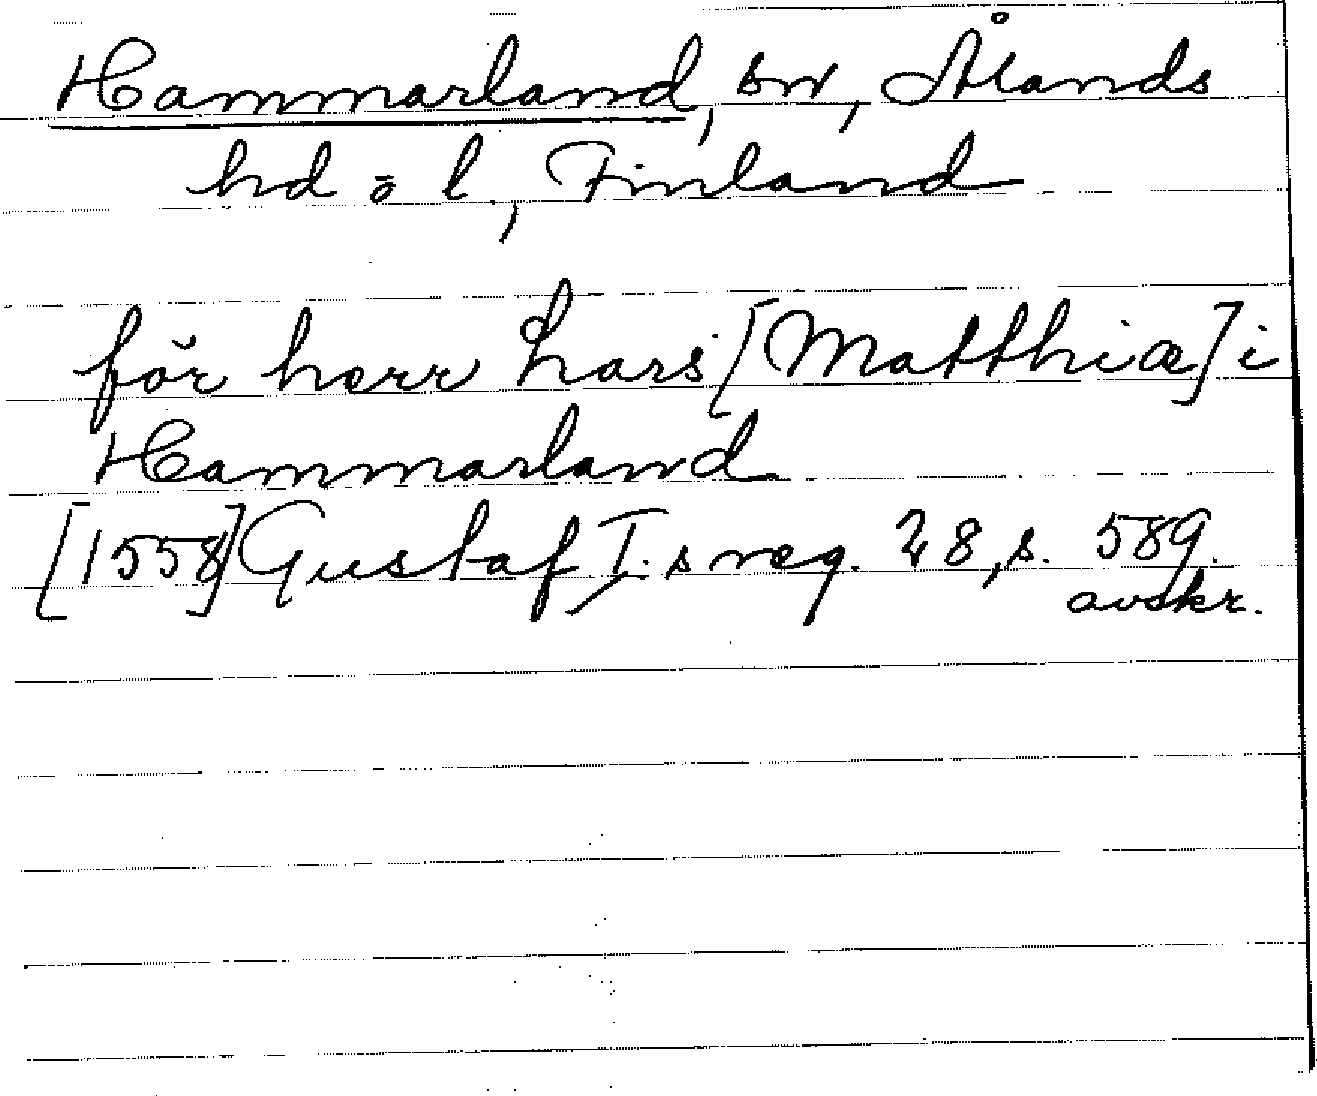 Hammarland, sn, Ålands
hd o l, Finland
för herr Lars [Matthiæ] i
Hammarland
[1558] Gustaf I.s reg. 28, s. 589.
avskr.